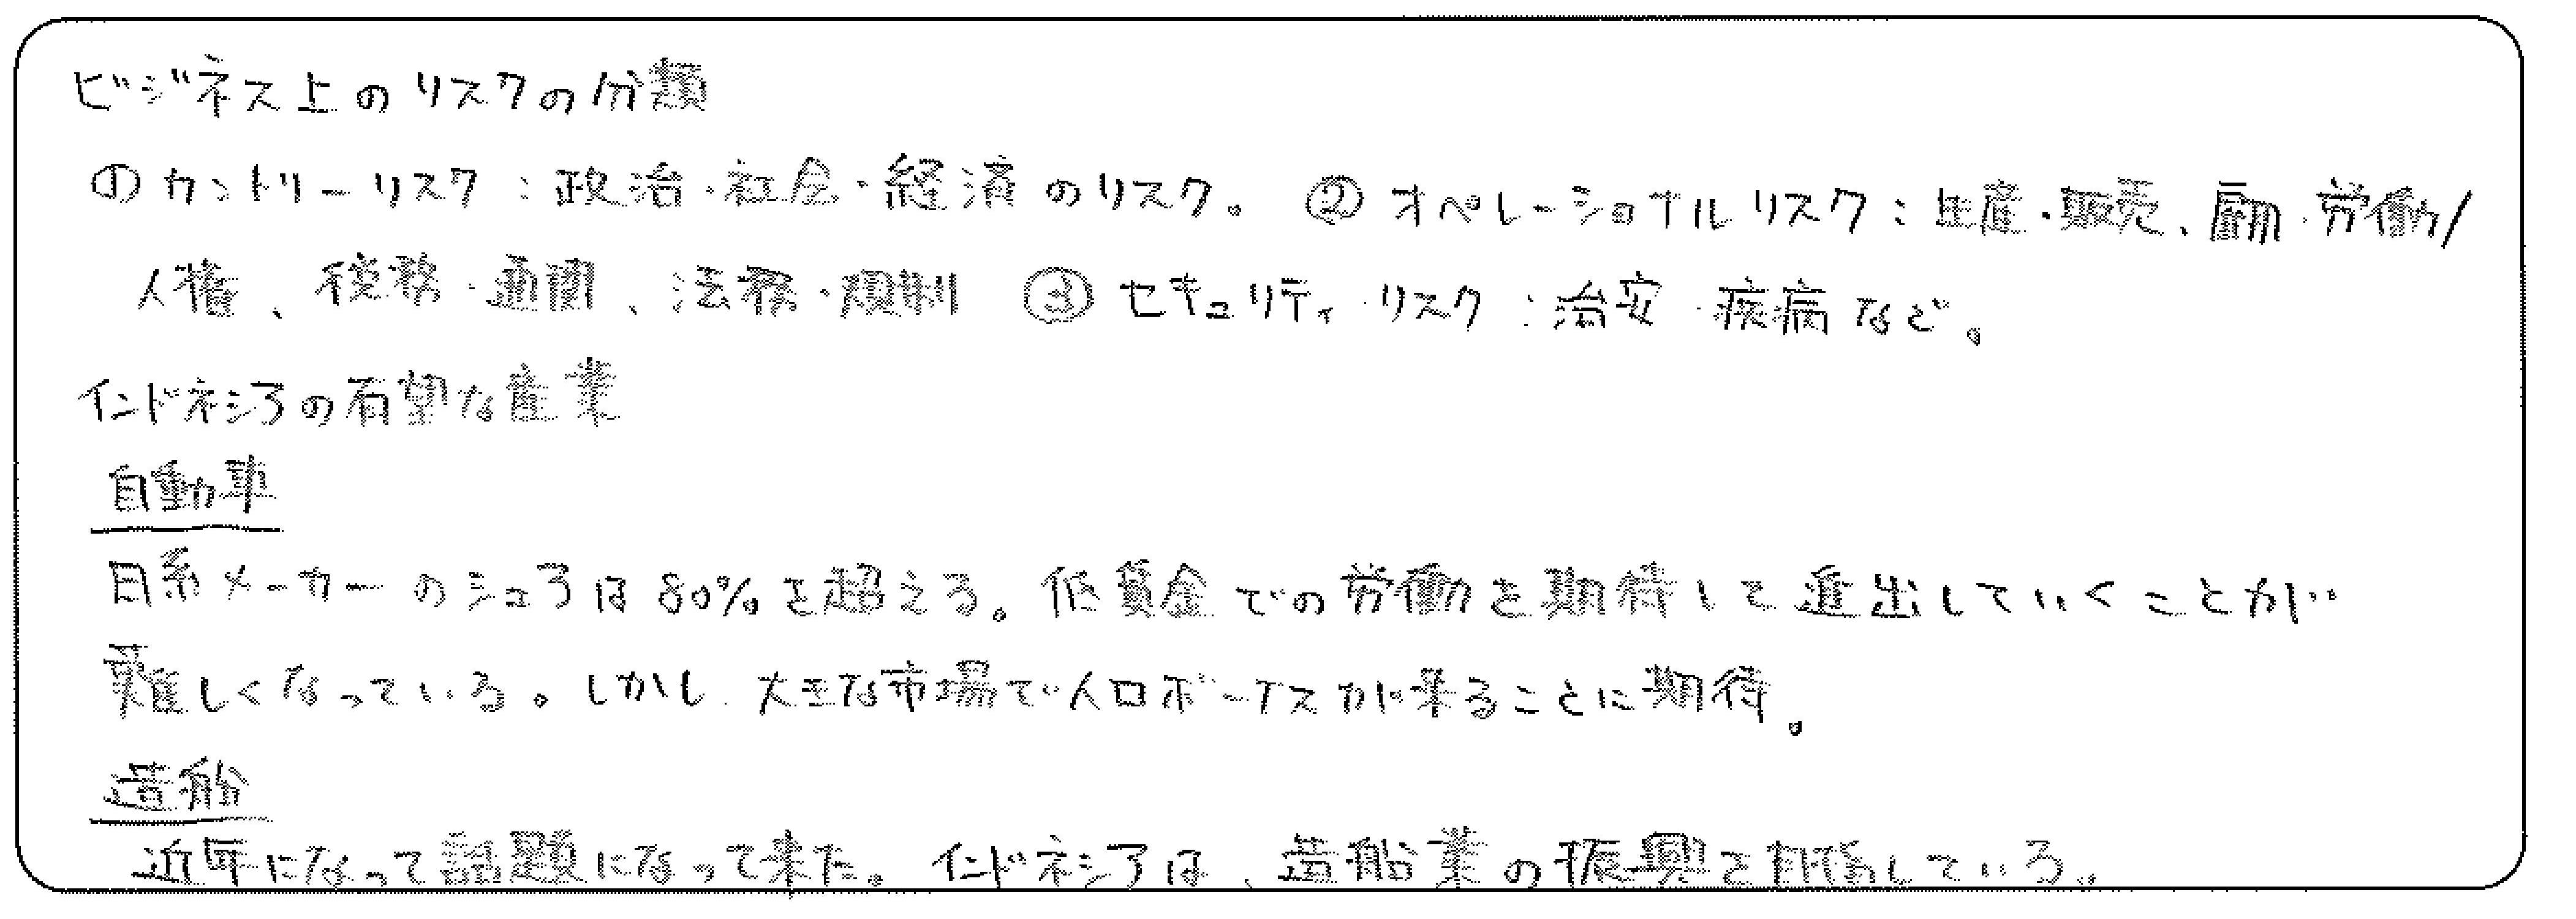 ビジネス上のリスクの分類
① カントリーリスク：政治・社会・経済のリスク。 ② オペレーショナルリスク：生産・販売、雇用・労働/
人権、税務・通関、法務・規制 ③ セキュリティ・リスク：治安・疾病など。
インドネシアの有望な産業
自動車
日系メーカーのシェアは80%を超える。低賃金での労働を期待して進出していくことが
難しくなっている。しかし、大きな市場で人口ボーナスが来ることに期待。
造船
近年になって話題になって来た。インドネシアは、造船業の振興を目指している。